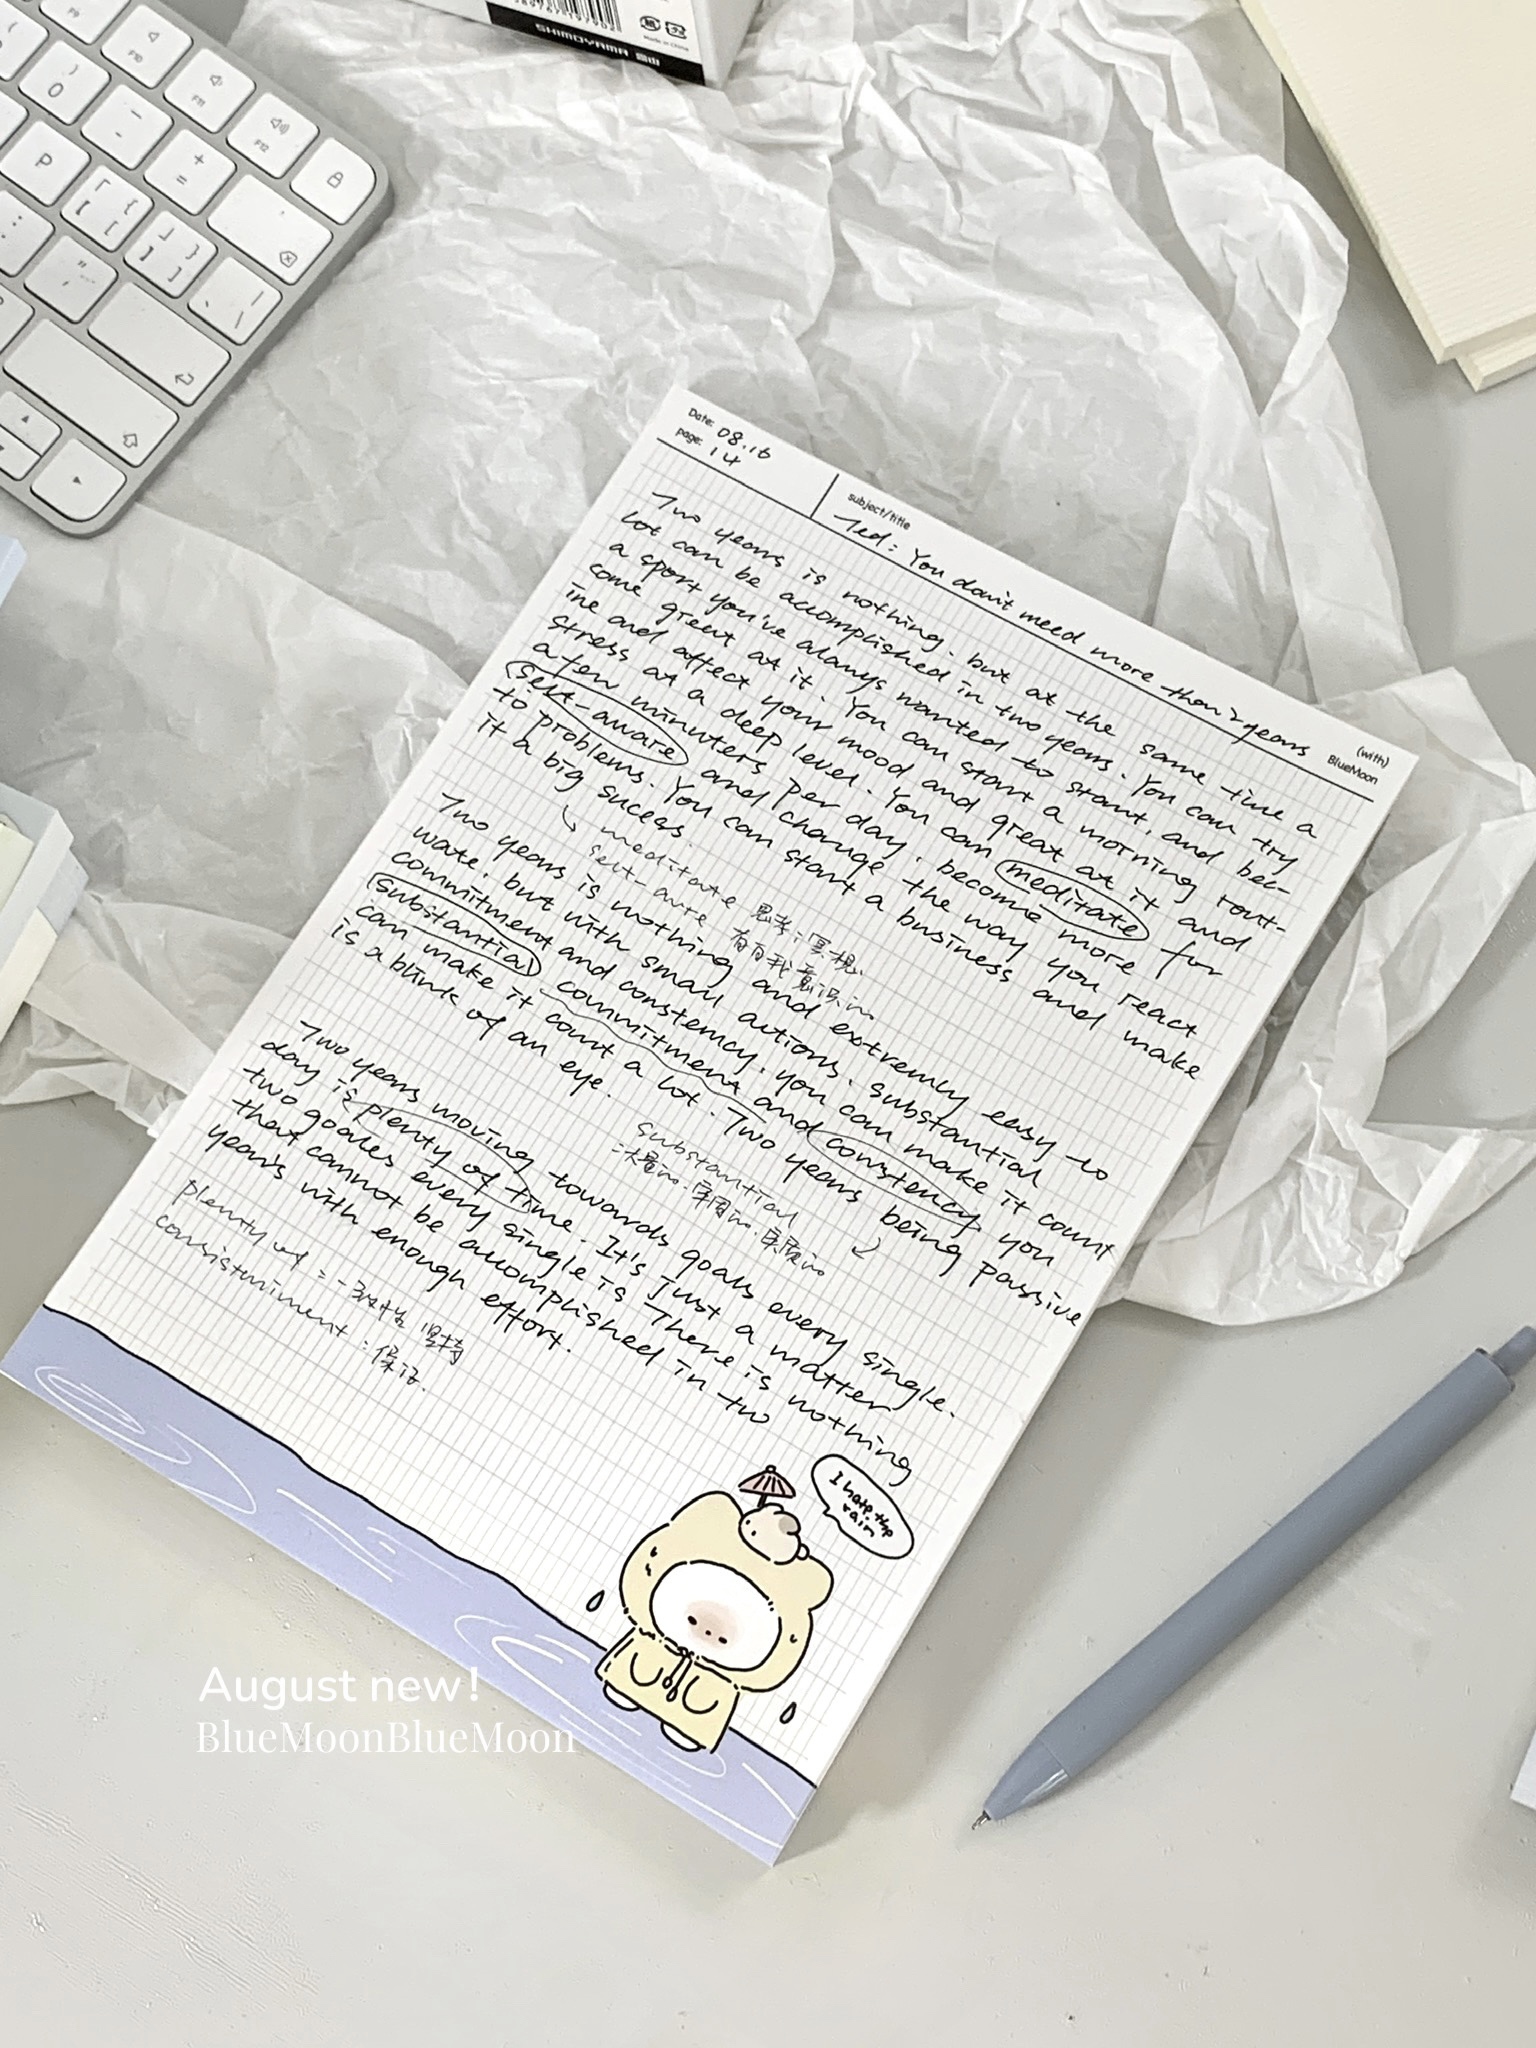 SHIMOYAMA
Made in China
F9
F10
F11
F12
P
Date: 08.16
page: 14
subject/title
Ted: You don't need more than 2 years
(with)
BlueMoon
Two years is nothing. but at the same time a
lot can be accomplished in two years. You can try
a sport you've always wanted to start, and bec-
come great at it. You can start a morning rout-
ine and affect your mood and great at it and
stress at a deep level. You can meditate for
a few minuters per day. become more
self-aware and change the way you react
to problems. You can start a business and make
it a big sucess.
meditate 思考；冥想
self-aware 有自我意识的
Two years is nothing and extremly easy to
wate. but with small actions. substantial
commitment and constency. you can make it count
substantial commitment and constency you
can make it count a lot. Two years being passive
is a blink of an eye.
substantial
:大量的.牢固的.
Two years moving towards goals every single.
day is plenty of time. It's just a matter
two goales every single is There is nothing
that cannot be accomplished in two
year's with enough effort.
plenty of :
consistminent : 保证.
I hate the
rain
August new!
BlueMoonBlueMoon